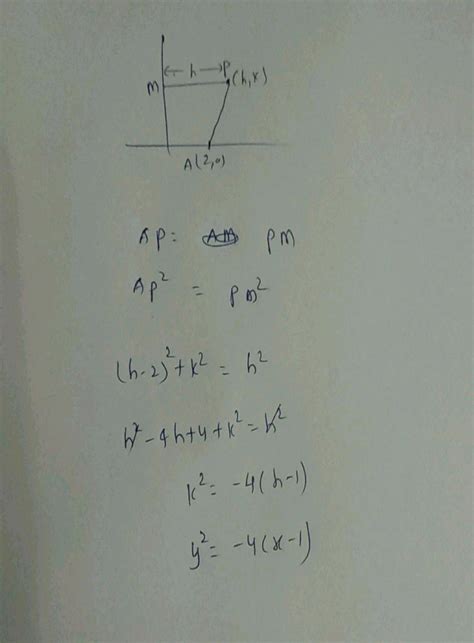 ← h → P
M (h,k)
A(2,0)
AP = AM PM
AP² = PM²
(h-2)²+k² = h²
h²-4h+4+k²=h²
k²= -4(h-1)
y²= -4(x-1)